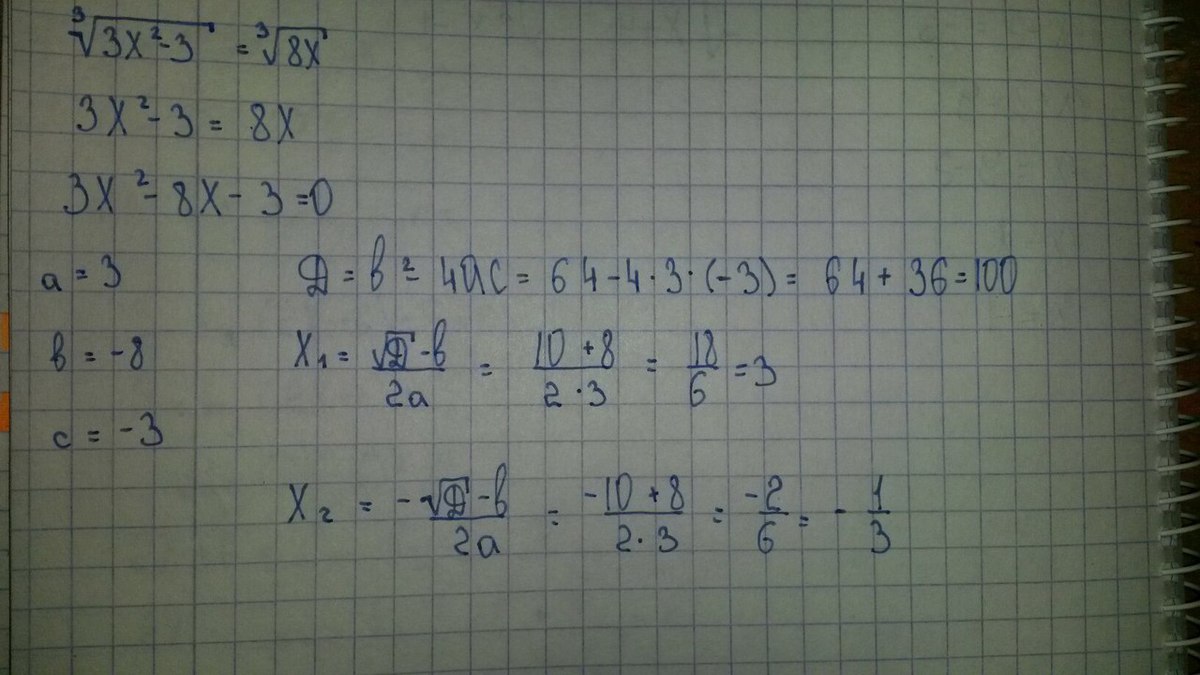 ∛(3x²-3) = ∛(8x)
3x²-3 = 8x
3x²-8x-3=0
a = 3
D = b² - 4ac = 64-4·3·(-3) = 64+36=100
b = -8
x₁ = (√D-b)/(2a) = (10+8)/(2·3) = 18/6 = 3
c = -3
x₂ = (-√D-b)/(2a) = (-10+8)/(2·3) = -2/6 = -1/3